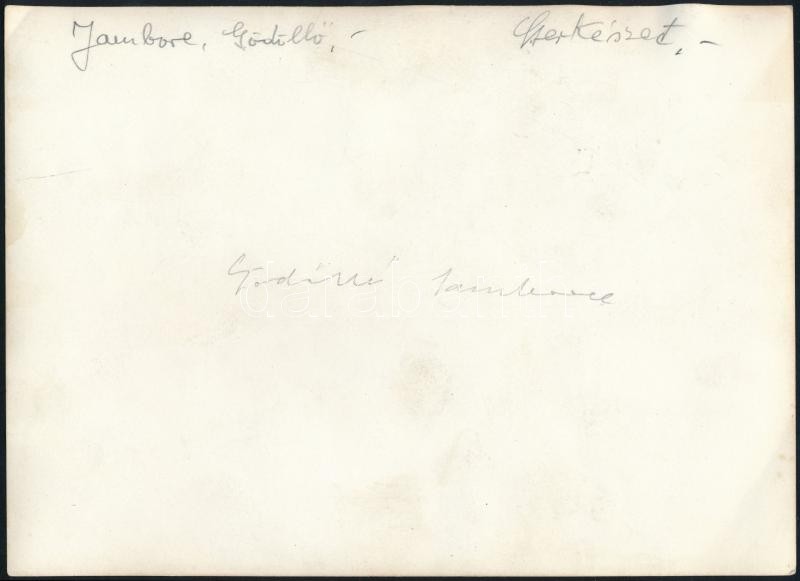 Jambore, Gödöllő,- Cserkészet,-
Gödöllő Jamboree
darabanth